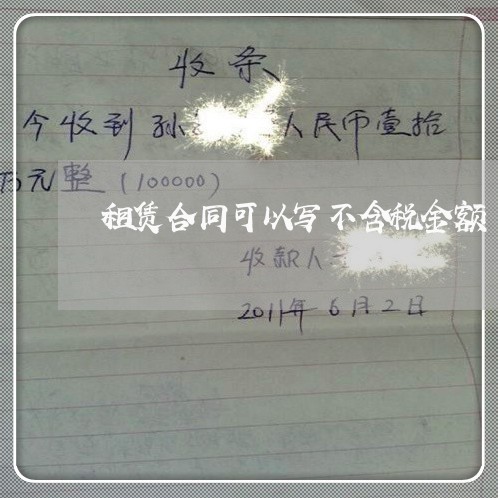 收条
今收到孙 人民币壹拾
万元整(100000)
租赁合同可以写不含税金额
收款人
2011年6月2日